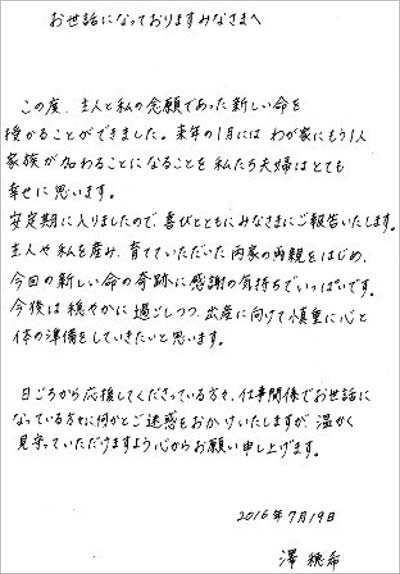 お世話になっておりますみなさまへ
この度、主人と私の念願であった新しい命を
授かることができました。来年の1月には わが家にもう1人
家族が加わることになることを 私たち夫婦はとても
幸せに思います。
安定期に入りましたので、喜びとともにみなさまにご報告いたします。
主人や私を産み、育てていただいた両家の両親をはじめ、
今回の新しい命の奇跡に感謝の気持ちでいっぱいです。
今後は穏やかに過ごしつつ、出産に向けて慎重に心と
体の準備をしていきたいと思います。
日ごろから応援してくださっている方々、仕事関係でお世話に
なっている方々に何かとご迷惑をおかけいたしますが、温かく
見守っていただけますよう心からお願い申し上げます。
2016年7月19日
澤 穂希